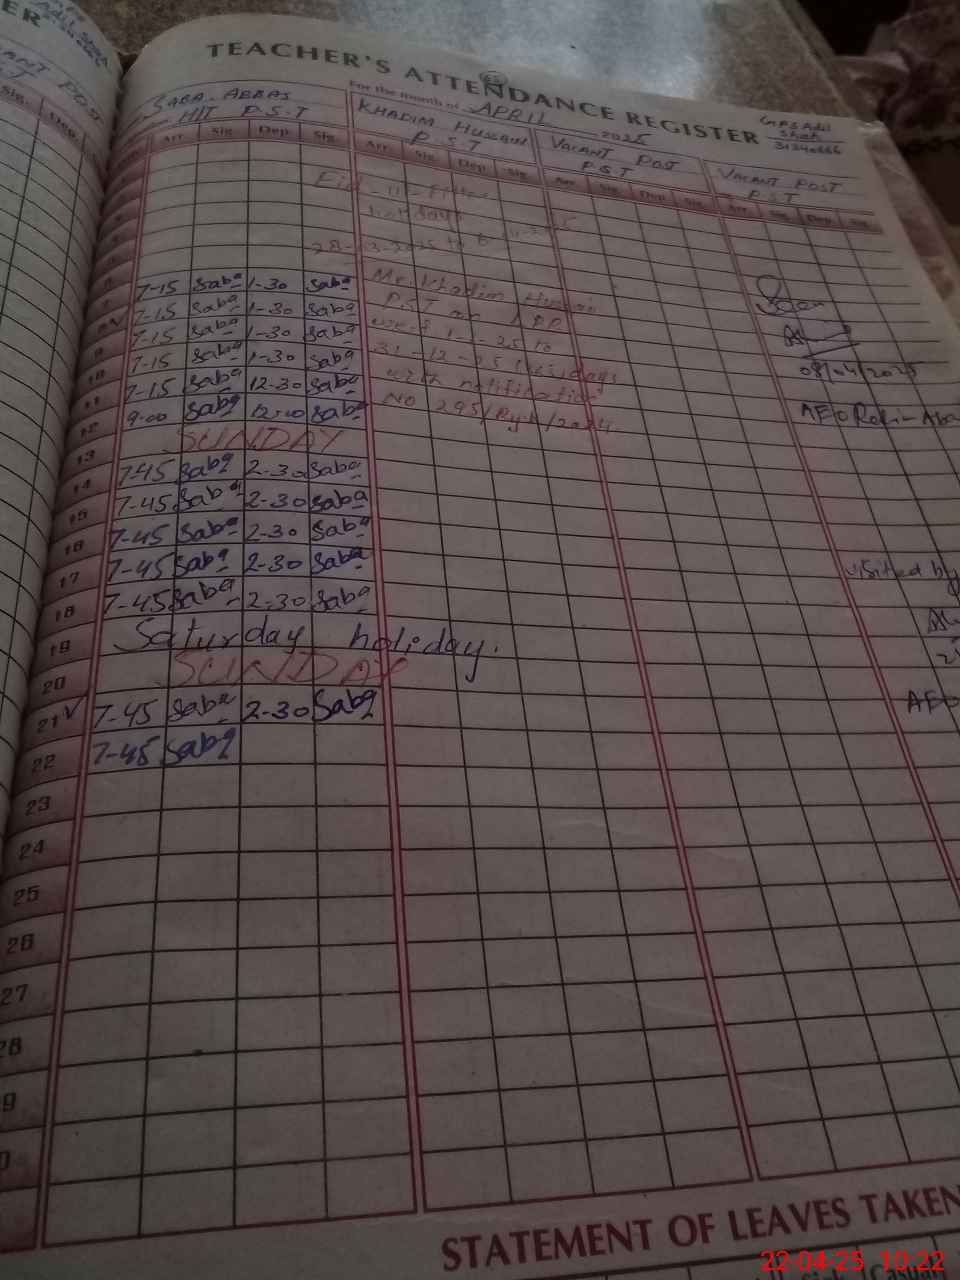 TEACHER'S ATTENDANCE REGISTER
For the month of APRIL 2025
GPS Adil
Shah
31340666
SABA ABBAS
HIT P.S.T
KHADIM HUSSAIN
P.S.T
VACANT POST
P.S.T
VACANT POST
P.S.T
Arr. Sig. Dep. Sig. Arr. Sig. Dep. Sig. Arr. Sig. Dep. Sig. Arr. Sig. Dep. Sig.
Eid-ul-Fitar
holidays
28-3-2025 to 6-4-2025
7-15 Saba 1-30 Saba
7-15 Saba 1-30 Saba
7-15 Saba 1-30 Saba
7-15 Saba 1-30 Saba
7-15 Saba 12-30 Saba
9-00 Saba 12-00 Saba
Mr. Khadim Hussain
P.S.T on LPR
w.e.f
31-12-25
with notification
No 295/
08/04/2025
AEO
12
SUNDAY
13
14 7-45 Saba 2-30 Saba
15 7-45 Saba 2-30 Saba
16 7-45 Saba 2-30 Saba
17 7-45 Saba 2-30 Saba
18 7-45 Saba 2-30 Saba
visited by
19 Saturday holiday.
20 SUNDAY
21 7-45 Saba 2-30 Saba
AEO
22 7-45 Saba
23
24
25
26
27
28
9
0
STATEMENT OF LEAVES TAKEN
22-04-25 10:22